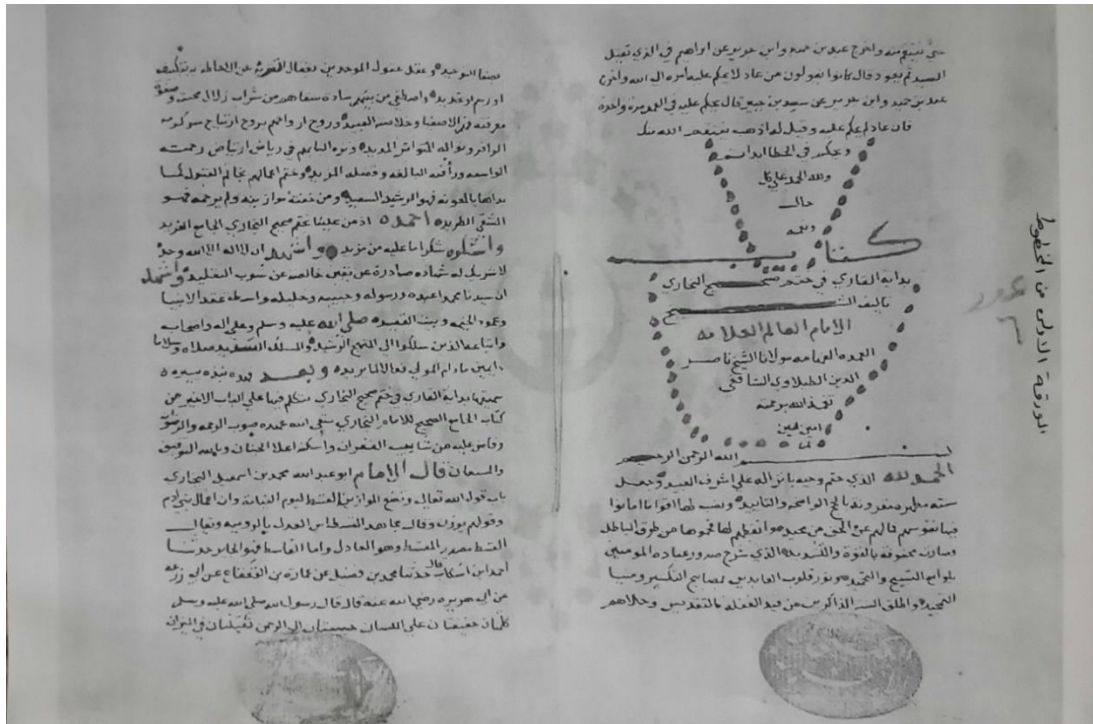 حتى ينتقم منه واخرج عبد بن حميد وابن جرير عن ابراهيم في الذي تقتل
الصيد ثم يعود قال كانوا يقولون من عاد لا يحكم عليه امره الي الله واخرج
عبد بن حميد وابن جرير عن سعيد بن جبير قال يحكم عليه في العمد مرة واحدة
فان عاد لم يحكم عليه وقيل له اذهب ينتقم الله منك
ويحكم في الخطا ابدا
ولله الحمد علي كل
حال
كتاب
بداية القاري في ختم صحيح البخاري
تاليف الشيخ
الامام العالم العلامه
العمده الفهامه مولانا الشيخ ناصر
الدين الطبلاوي الشافعي
تغمده الله برحمته
امين امين
بسم الله الرحمن الرحيم
الحمد لله الذي ختم وحيه بانزاله علي اشرف العبيد وجعل
سنته مطهره مقرونة بالحج الواضحه والتاييد ونصب لها اقواما امانوا
فيها نفوسهم فمالهم عن الحق من محيد
وصارت محفوفة بالقوة والتسديد الذي شرح صدور عباده المومنين
بلوامع التسبيح والتحميد ونور قلوب العابدين بمصابيح التكبير
التمجيد واطلق السنة الذاكرين من قيد الغفله بالتقديس وحلاهم
بصفا التوحيد وعقل عقول الموحدين بعقال عن الاحاطه
وسقاهم من شراب زلال محبته
معرفته فهم الاصفيا وخلاصة العبيد وروح ارواحهم بروح ارتياح
الوافر ونواله المتواتر المديد في رياض رحمته
الواسعه ورافته البالغه وفضله المزيد وختم اعمالهم بخاتم القبول كما
بداها بالمعونه فهو الرشيد السعيد ومن خفت موازينه ولم يرحمه فهو
الشقي الطريد احمده اذ من علينا بختم صحيح البخاري الجامع الفريد
واشكره شكرا ما عليه من مزيد واشهد ان لا اله الا الله وحده
لا شريك له شهادة صادرة عن يقين خالصه عن شوب التقليد واشهد
ان سيدنا محمدا عبده ورسوله وحبيبه وخليله واسطة عقد الانبيا
وبيت القصيد صلي الله عليه وسلم وعلي اله واصحابه
واتباعه الذين سلكوا الي المنهج الرشيد والمسلك السديد صلاة وسلاما
دايمين ما دام المولي فعالا لما يريد وبعد فهذه نبذه
سميتها بداية القاري في ختم صحيح البخاري متكلم فيها علي الباب الاخير من
كتاب الجامع الصحيح للامام البخاري سقي الله عهده صوب الرحمه والرضوان
وافاض عليه من شابيب الغفران واسكنه اعلا الجنان
قال الامام ابو عبد الله محمد بن اسمعيل البخاري
باب قول الله تعالي ونضع الموازين القسط ليوم القيامة وان اعمال بني ادم
وقولهم يوزن وقال مجاهد القسطاس العدل بالروميه ويقال
القسط مصدر المقسط وهو العادل واما القاسط فهو الجاير حدثنا
احمد ابن اشكاب قال حدثنا محمد بن فضيل عن عمارة بن القعقاع عن ابي زرعه
عن ابي هريره رضي الله عنه قال قال رسول الله صلي الله عليه وسلم
كلمتان خفيفتان علي اللسان حبيبتان الي الرحمن ثقيلتان في الميزان
الورقة الأولى من المخطوط